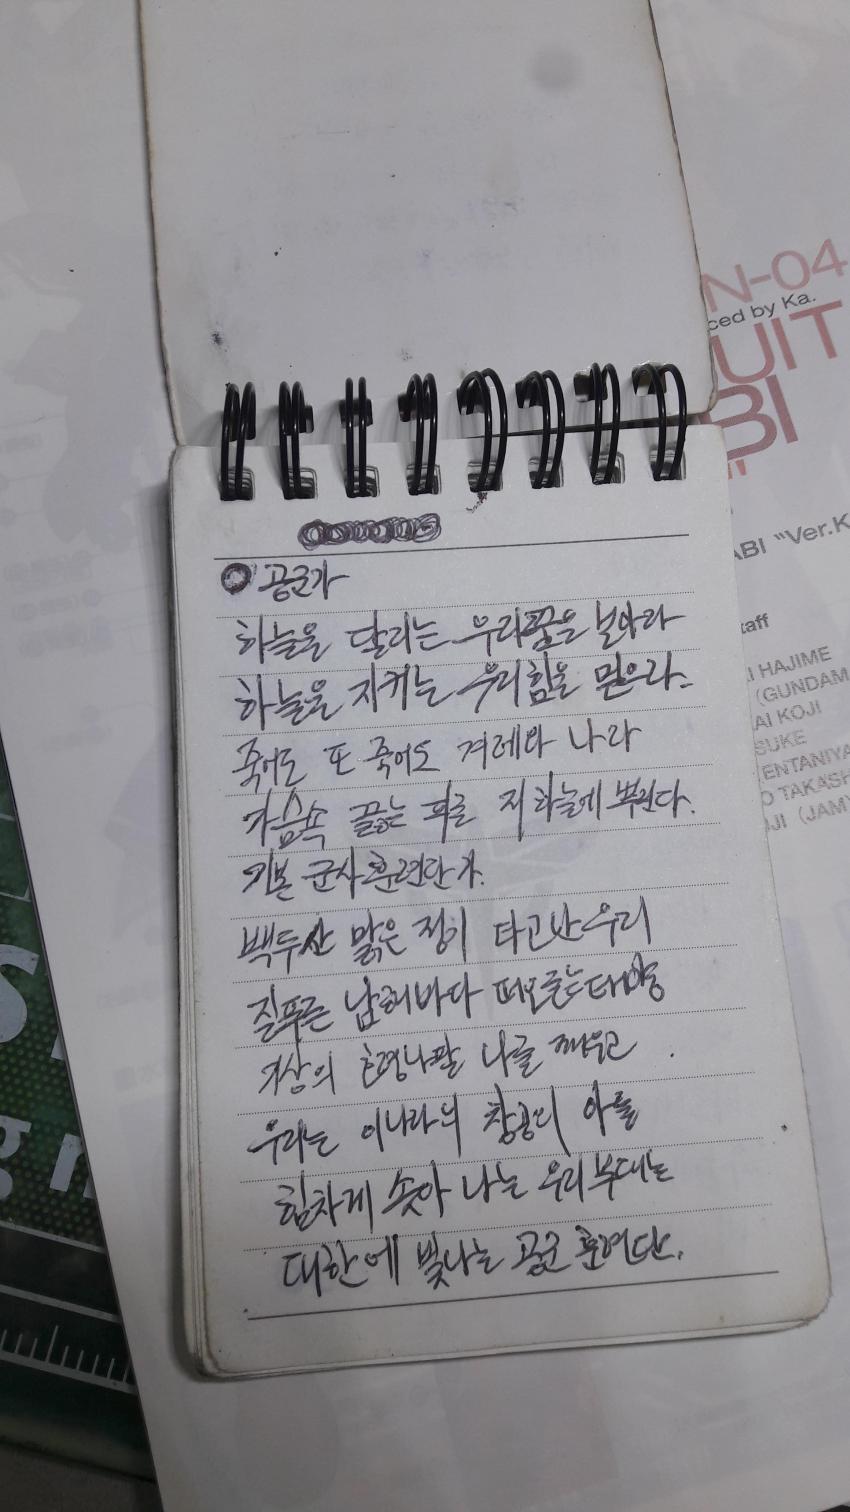 N-04
ced by Ka.
UIT
BI
ABI "Ver.K
taff
I HAJIME
(GUNDAM
AI KOJI
SUKE
ENTANIYA
O TAKASH
JI (JAM
공군가
하늘을 달리는 우리꿈을 보아라
하늘을 지키는 우리힘을 믿으라
죽어도 또 죽어도 겨레와 나라
가슴속 끓는 피를 저 하늘에 뿌린다.
기본 군사훈련단가.
백두산 맑은 정기 타고난 우리
짙푸른 남해바다 떠오르는 태양
지상의 나팔 나를 깨우고
우리는 이나라의 창공의 아들
힘차게 솟아 나는 우리 부대는
대한에 빛나는 공군 훈련단.